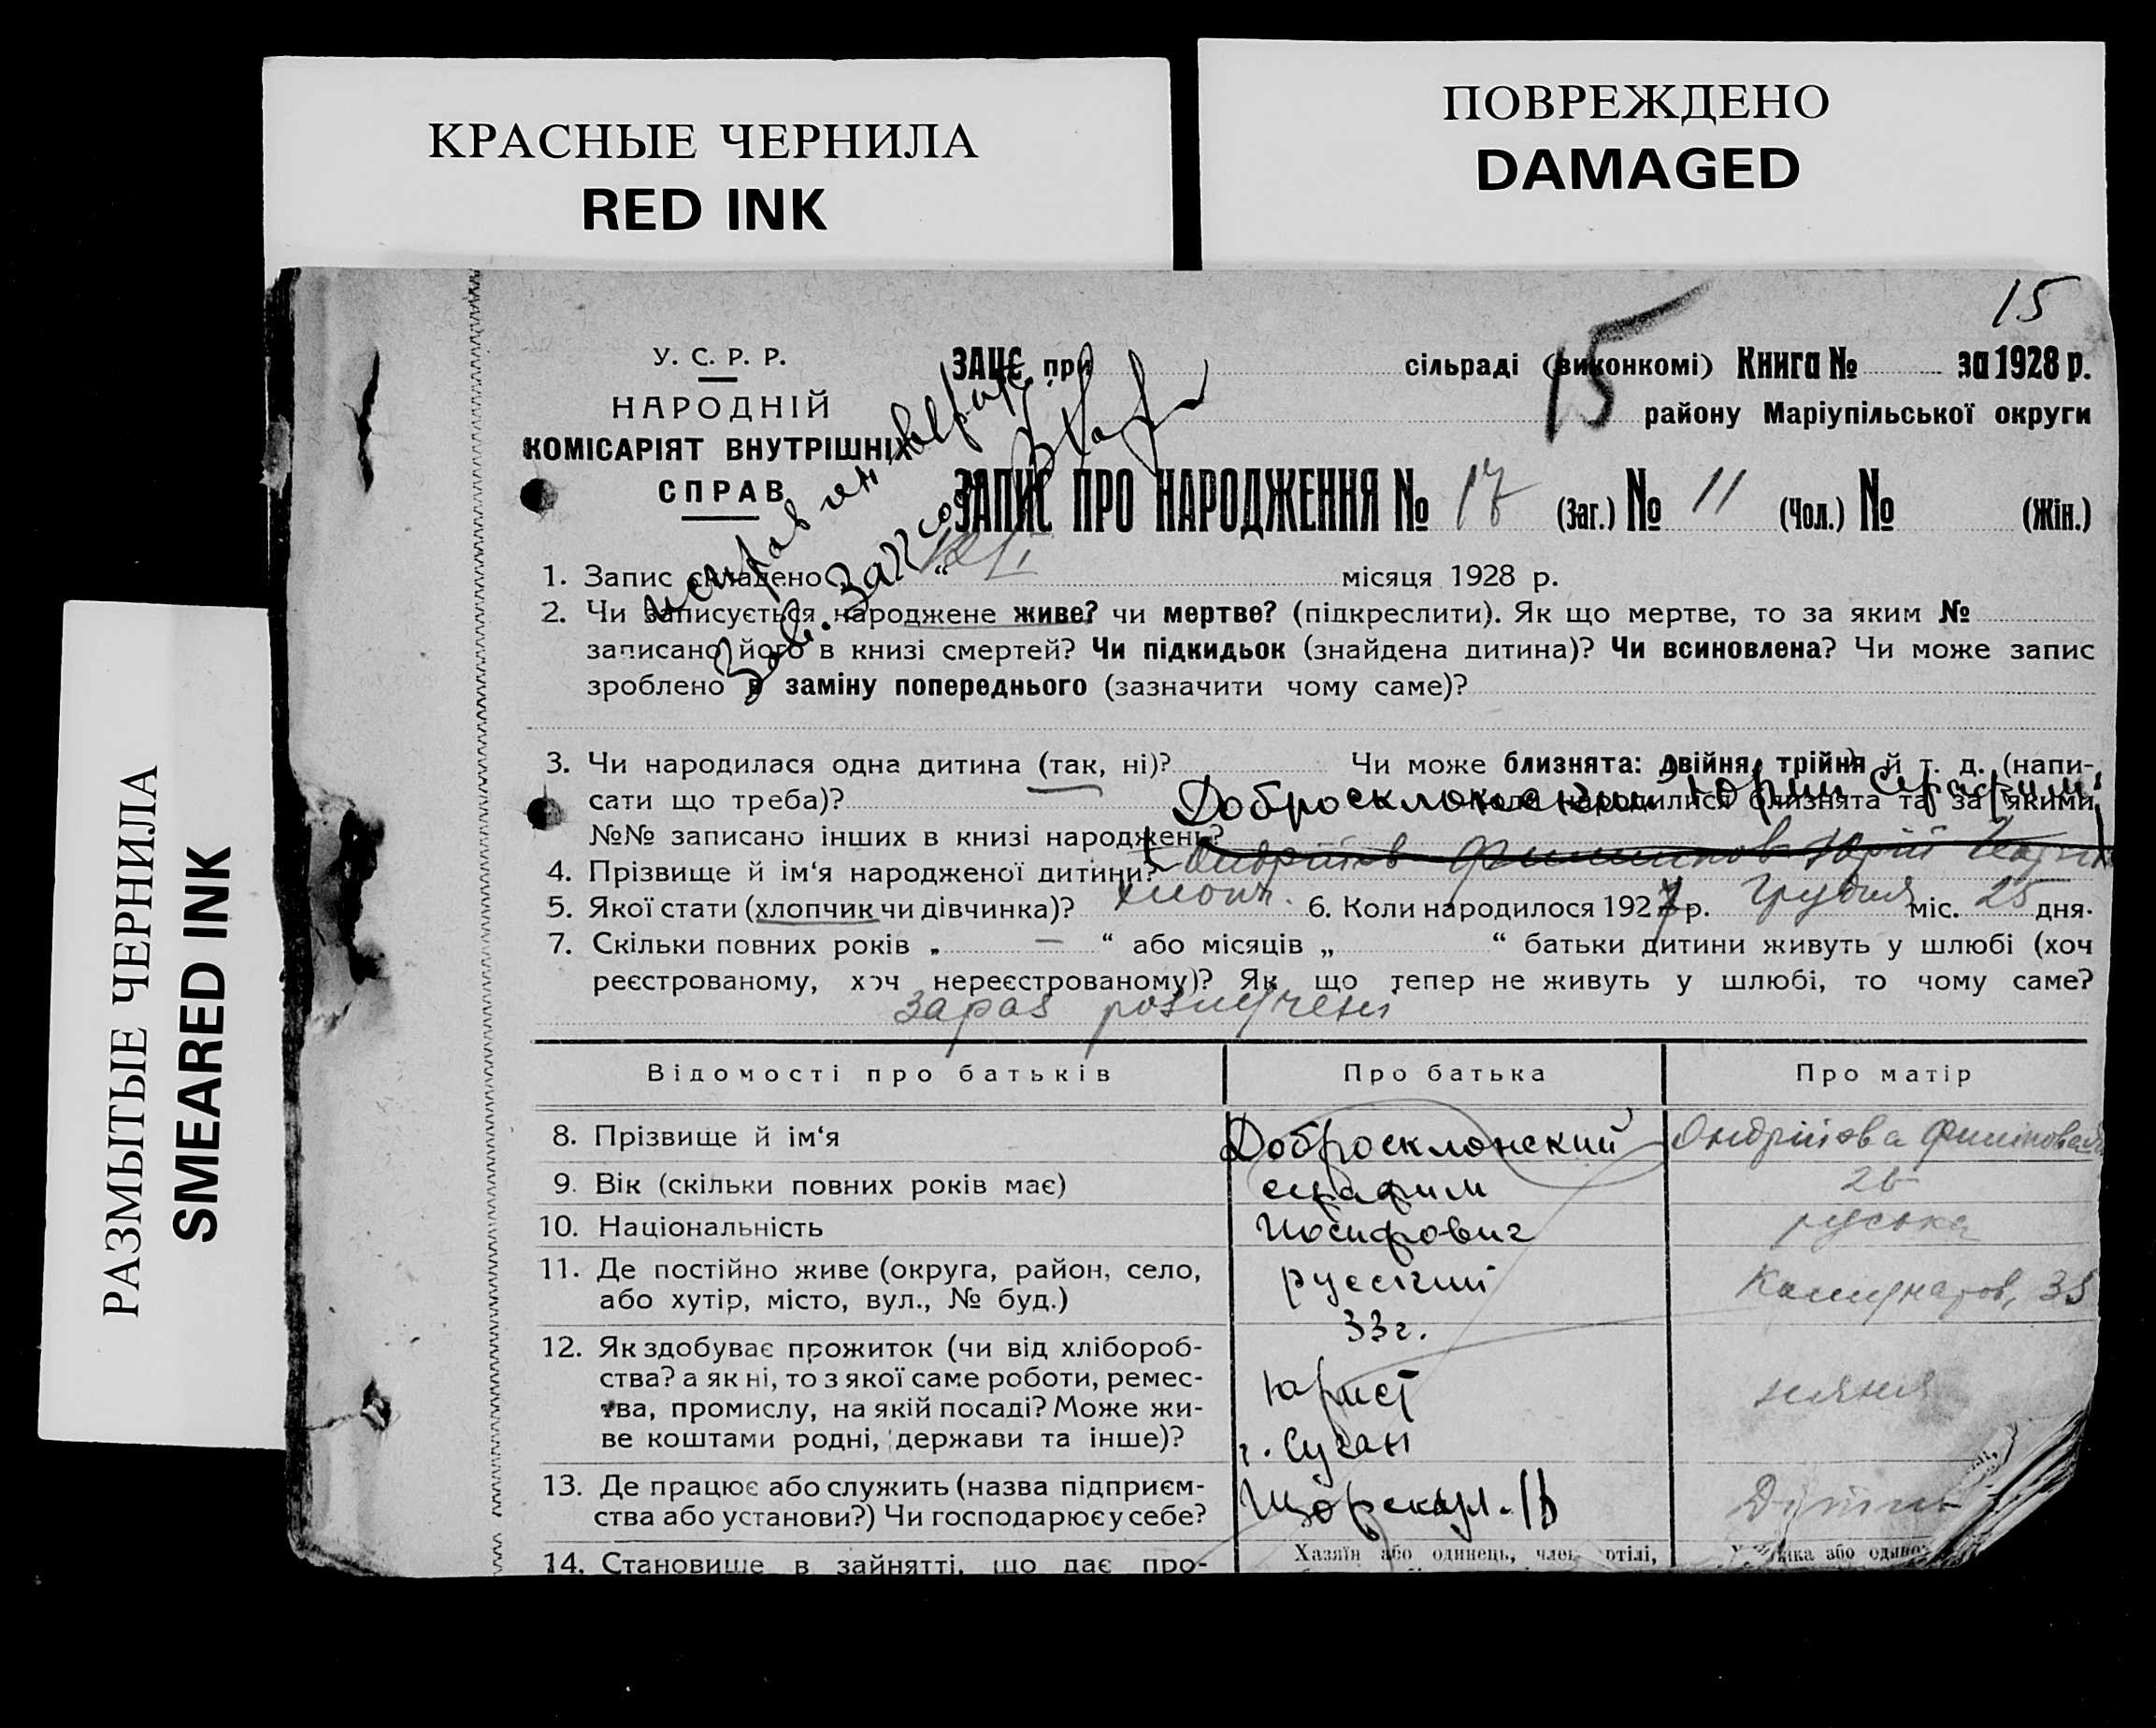 КРАСНЫЕ ЧЕРНИЛА
RED INK
ПОВРЕЖДЕНО
DAMAGED
РАЗМЫТЫЕ ЧЕРНИЛА
SMEARED INK
15
15
У. С. Р. Р.
НАРОДНІЙ
КОМІСАРІЯТ ВНУТРІШНІХ
СПРАВ
ЗАЦС при сільраді (виконкомі) Книга № за 1928 р.
району Маріупільської округи
ЗАПИС ПРО НАРОДЖЕННЯ № 17 (Заг.) № 11 (Чол.) № (Жін.)
1. Запис складено “ 12/I місяця 1928 р.
2. Чи записується народжене живе? чи мертве? (підкреслити). Як що мертве, то за яким №
записано його в книзі смертей? Чи підкидьок (знайдена дитина)? Чи всиновлена? Чи може запис
зроблено в заміну попереднього (зазначити чому саме)?
3. Чи народилася одна дитина (так, ні)? Чи може близнята: двійня, трійня й т. д. (напи-
сати що треба)? народилися близнята та за якими
Доброслонский Юрий
№№ записано інших в книзі народжень?
4. Прізвище й ім‘я народженої дитини? Юрій
5. Якої стати (хлопчик чи дівчинка)? хлопч. 6. Коли народилося 1927 р. Грудня міс. 25 дня.
7. Скільки повних років „ — “ або місяців „ “ батьки дитини живуть у шлюбі (хоч
реєстрованому, хоч нереєстрованому)? Як що тепер не живуть у шлюбі, то чому саме?
зараз розлучені
Відомості про батьків Про батька Про матір
8. Прізвище й ім‘я Добросклонский
9. Вік (скільки повних років має) Серафим 26
10. Національність Иосифович руська
11. Де постійно живе (округа, район, село,
або хутір, місто, вул., № буд.) русский
33 г.
12. Як здобуває прожиток (чи від хлібороб-
ства? а як ні, то з якої саме роботи, ремес-
тва, промислу, на якій посаді? Може жи-
ве коштами родні, держави та інше)? юрист няня
г. Сучан
13. Де працює або служить (назва підприєм-
ства або установи?) Чи господарює у себе?
14. Становище в зайнятті, що дає про-
Хазяїн або одинець, член отілі,